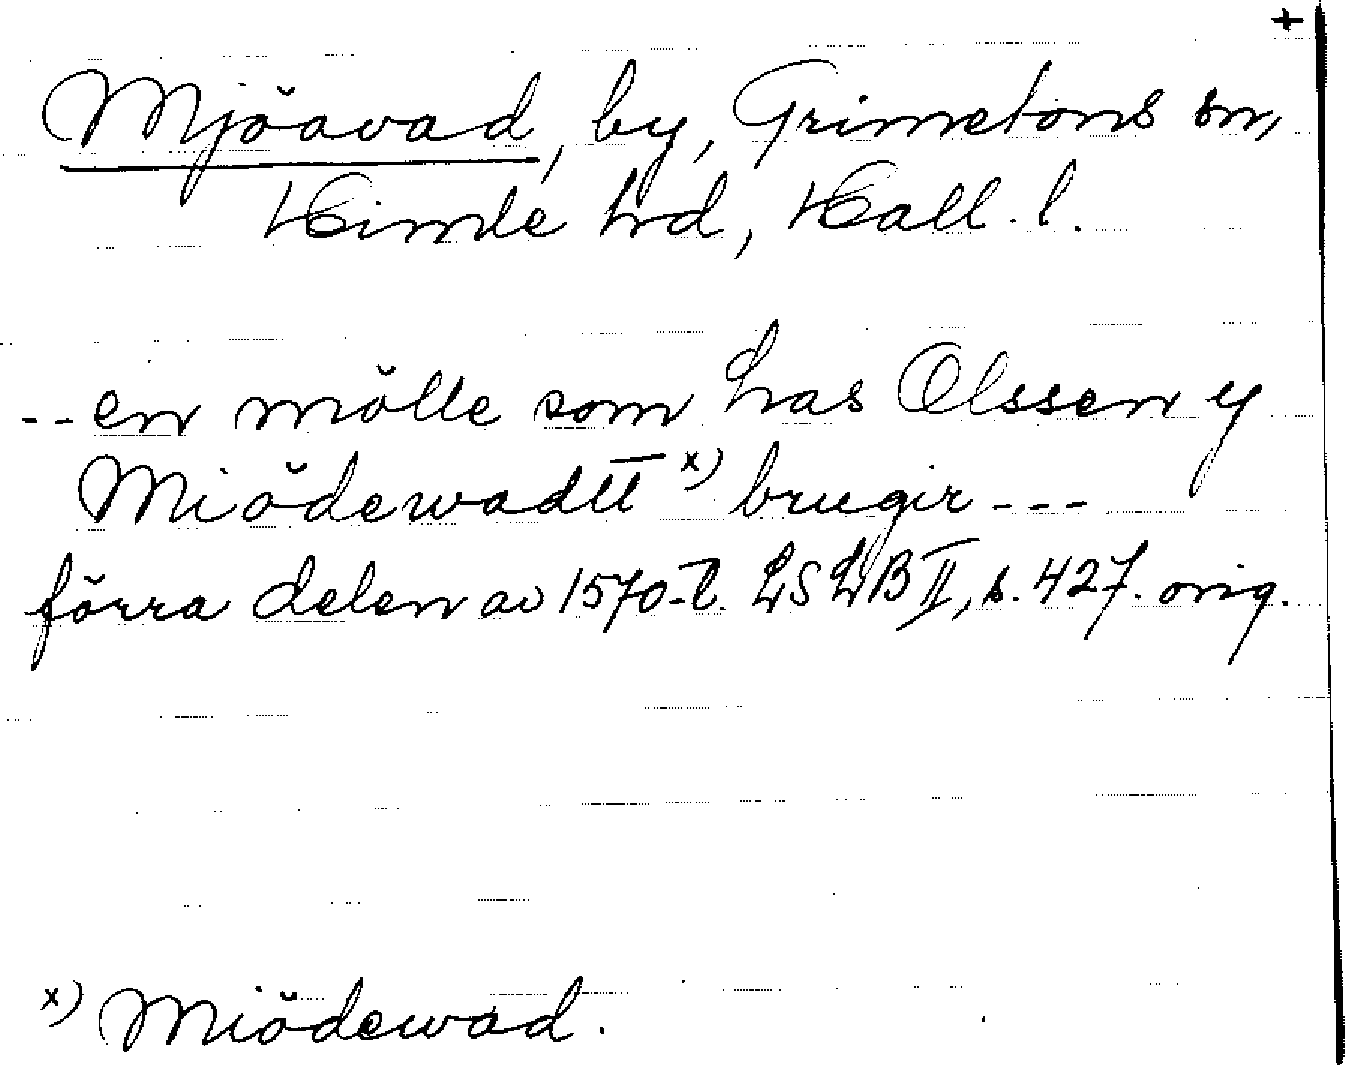 +
Mjöavad, by, Grimetons sn,
Himle hrd, Hall. l.
-- en mölle som has Olssen y
Miödewadtt x) brugir ---
förra delen av 1570-t. LSLB II, s. 427. orig.
x) Miödewad.